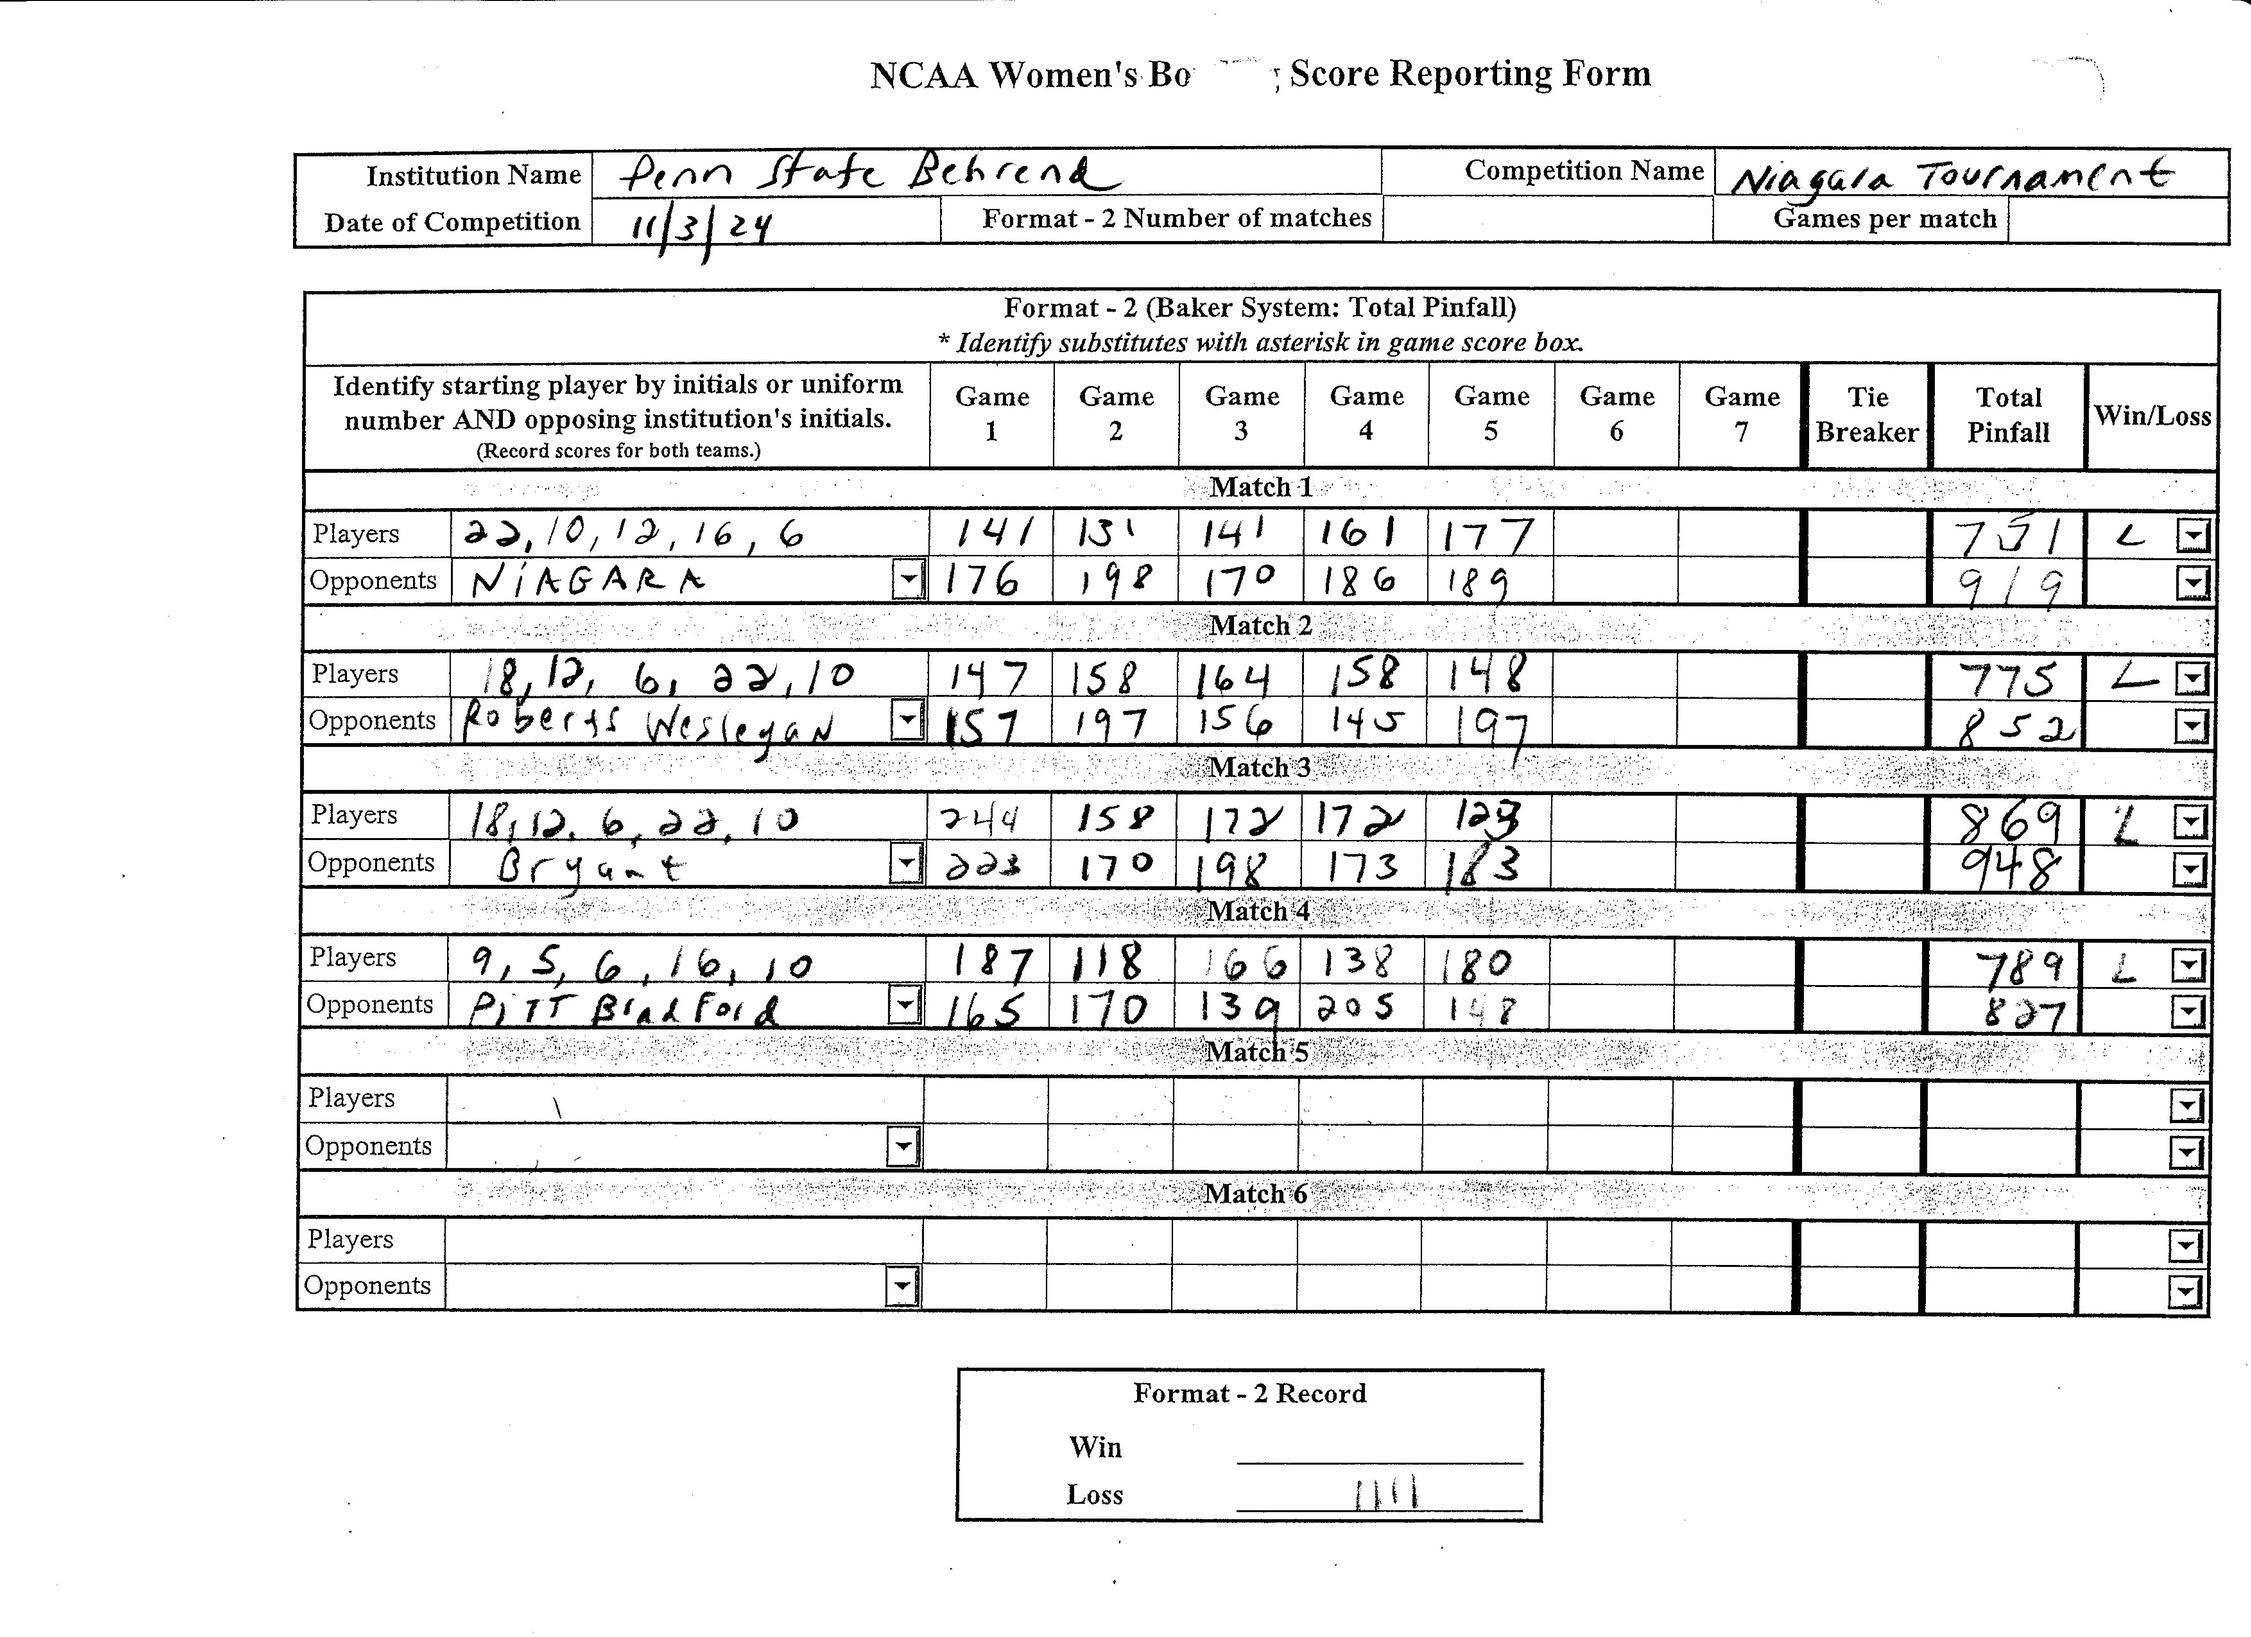 NCAA Women's Bo Score Reporting Form
Institution Name Penn State Behrend Competition Name Niagara Tournament
Date of Competition 11/3/24 Format - 2 Number of matches Games per match
Format - 2 (Baker System: Total Pinfall)
* Identify substitutes with asterisk in game score box.
Identify starting player by initials or uniform number AND opposing institution's initials. (Record scores for both teams.) Game 1 Game 2 Game 3 Game 4 Game 5 Game 6 Game 7 Tie Breaker Total Pinfall Win/Loss
Match 1
Players 22, 10, 12, 16, 6 141 131 141 161 177 751 L
Opponents NiAGARA 176 198 170 186 189 919
Match 2
Players 18, 12, 6, 22, 10 147 158 164 158 148 775 L
Opponents Roberts Wesleyan 157 197 156 145 197 852
Match 3
Players 18, 12, 6, 22, 10 244 158 172 172 123 869 L
Opponents Bryant 223 170 198 173 183 948
Match 4
Players 9, 5, 6, 16, 10 187 118 166 138 180 789 L
Opponents PiTT BradFord 165 170 139 205 148 827
Match 5
Players
Opponents
Match 6
Players
Opponents
Format - 2 Record
Win
Loss 1111